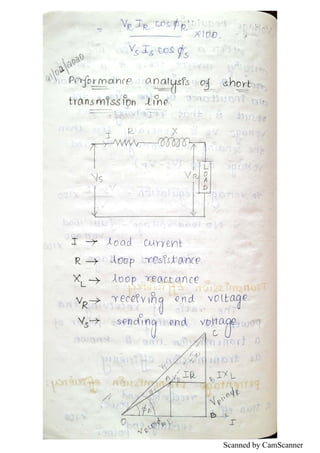 = V_R I_R cosφ_R ×100.
V_S I_S cosφ_S
01/02/2020
Performance analysis of short
transmission line
I R X
V_S V_R LOAD
I → load current
R → loop resistance
X_L → loop reactance
V_R → receiving end voltage
V_S → sending end voltage
C
V_S
IR IX_L
V_R
φ_R
O B I
V_R cosφ_R
Scanned by CamScanner